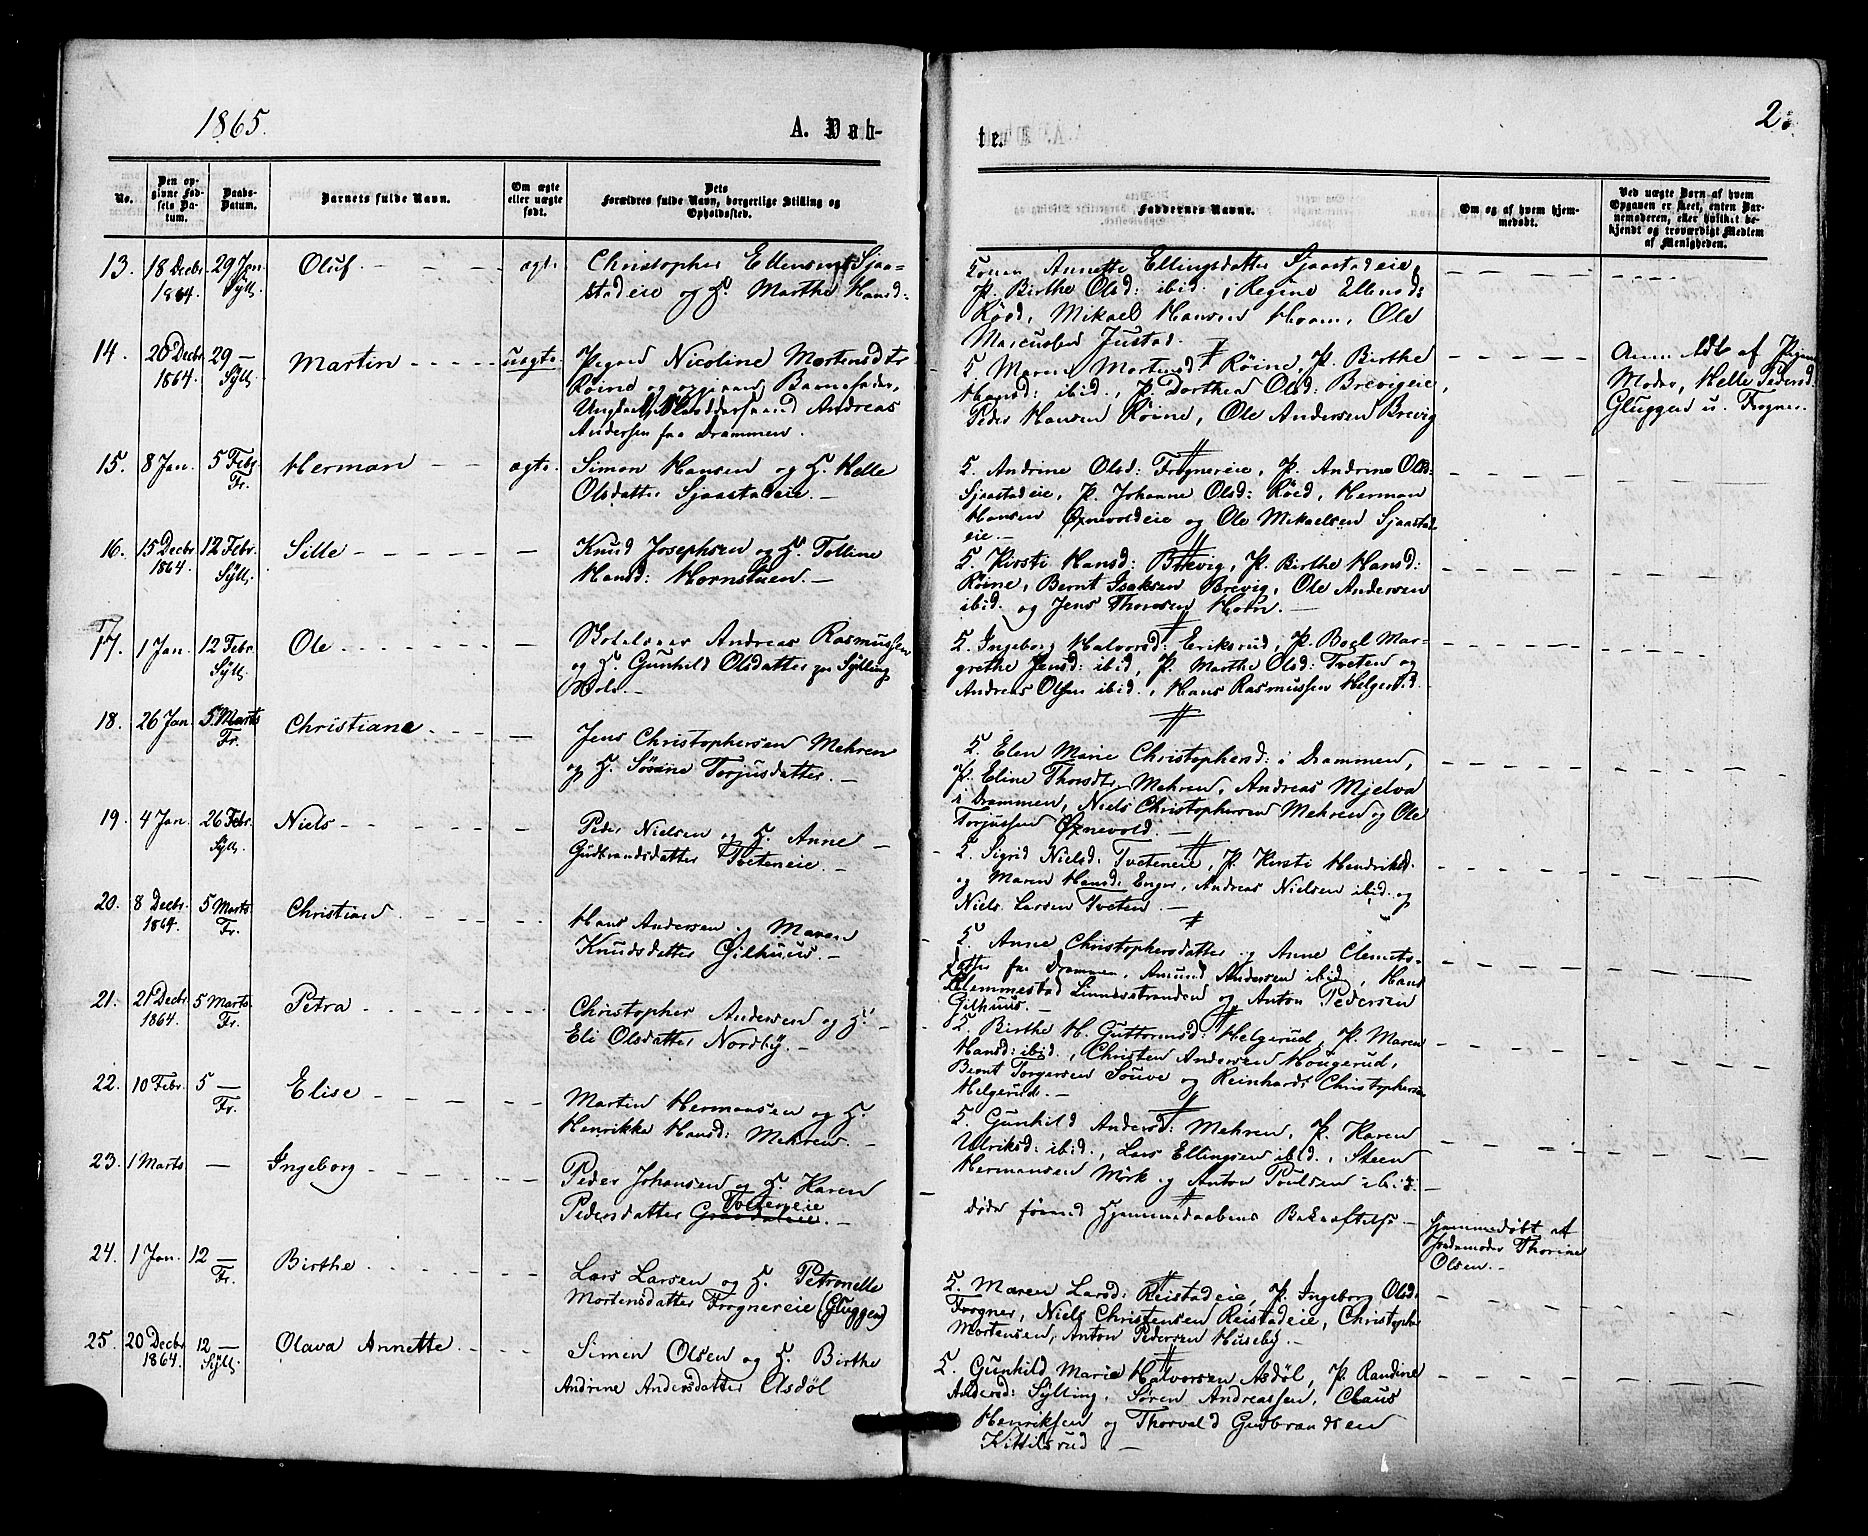 1865.
A. Døb-
te.
2.
No.
Den op-
givne Fød-
sels Da-
tum.
Daabs-
Datum.
Barnets fulde Navn.
Om ægte
eller uægte
født.
Dets
Forældres fulde Navn, borgerlige Stilling og
Opholdssted.
Faddernes Navne.
Om og af hvem hjem-
medøbt.
Ved uægte Børn af hvem
Opgaven er skeet, enten Bar-
nemoderen, eller hvilket be-
kjendt og troværdigt Medlem
af Menigheden.
13. 18 Decbr 29 Jan. Oluf ægte Christopher Ellensen Sjaa-
1864. Syll.
stadeie og H. Marthe Hansd:
Konen Annette Ellingsdatter Sjaastadeie,
P. Birthe Olsd: ibid., Regine Ellensd:
Røed, Mikael Hansen Hoam, Ole
Marcussen Justad.
14. 20 Decbr 29 — Martin uægte. Pigen Nicoline Mortensdtr
1864. Syll.
Røine og opgiven Barnefader,
Ungkarl Andreas
Andersen fra Drammen.
K. Maren Mortensd: Røine, P. Birthe
Hansd: ibid., P. Dorthea Olsd: Brevigeie,
Peder Hansen Røine, Ole Andersen Brevig
Anm. af
Moder, Helle Pedersd.
Gluggen u. Frogner.
15. 8 Jan. 5 Febr. Herman ægte. Simon Hansen og H. Helle
Fr.
Olsdatter Sjaastadeie.
K. Andrine Olsd: Frognereie, P. Andrine Olsd:
Sjaastadeie, P. Johanne Olsd: Røed, Herman
Hansen Øxnevoldeie og Ole Mikaelsen Sjaastad-
eie.
16. 15 Decbr 12 Febr. Sille — Knud Josephsen og H. Tolline
1864 Syll.
Hansd: Hornstuen.
K. Kirsti Hansd: Brevig, P. Birthe Hansd:
Røine, Bernt Isaksen Brevig, Ole Andersen
ibid. og Jens Thoresen Horn.
17. 1 Jan. 12 Febr. Ole — Andreas Rasmussen
Syll.
og H. Gunhild Olsdatter Sylling
K. Ingeborg Halvorsd: Eriksrud, P. Boel Mar-
grethe Jensd: ibid, P. Marthe Olsd: Tveten og
Andreas Olsen ibid., Hans Rasmussen Helgerud.
18. 26 Jan. 5 Marts Christiane — Jens Christophersen Mehren
Fr.
og H. Sørine Torjusdatter.
K. Elen Marie Christophersd: i Drammen,
P. Eline Thorsdtr Mehren, Andreas Mjelva
i Drammen, Niels Christophersen Mehren og Ole
Torjussen Øxnevold.
19. 4 Jan. 26 Febr. Niels — Peder Nielsen og H. Anne
Syll.
Gudbrandsdatter Tveteneie.
K. Sigrid Nielsd: Tveteneie, P. Kirsti Hendriksd.
og Maren Hansd: Enger, Andreas Nielsen ibid. og
Niels Larsen Tveten.
20. 8 Decbr. 5 Marts Christian — Hans Andersen og Maren
1864. Fr.
Knudsdatter Gilhuus.
K. Anne Christophersdatter og Anne Clemets-
datter fra Drammen, Amund Andersen ibid, Hans
Klemmestad Linnesstranden og Anton Pedersen
Gilhuus.
21. 21 Decbr 5 Marts. Petra — Christopher Andersen og H.
1864. Fr.
Eli Olsdatter Nordby.
K. Birthe H. Guttormsd: Helgerud, P. Maren
Hansd: ibid., Christen Andersen Hougerud,
Bernt Torgersen Souve og Reinhardt Christophersen
Helgerud.
22. 10 Febr. 5 — Elise — Martin Hermansen og H.
Fr.
Henrikka Hansd: Mehren.
K. Gunhild Andersd: Mehren, P. Karen
Ulriksd: ibid., Lars Ellingsen ibid., Steen
Hermansen Mörk og Anton Poulsen ibid:
23. 1 Marts — Ingeborg — Peder Johansen og H. Karen
Tveteneie
Pedersdatter Graadaleie.
døde førend Hjemmedaabens Bekræftelse
Hjemmedøbt af
Jordemoder Thorine
Olsen.
24. 1 Jan. 12 — Birthe — Lars Larsen og H. Petronelle
Fr.
Mortensdatter Frognereie (Gluggen)
K. Maren Larsd: Reistadeie, P. Ingeborg Olsd:
Frogner, Niels Christensen Reistadeie, Christopher
Mortensen, Anton Pedersen Huseby.
25. 20 Decbr 12 — Olava Annette — Simen Olsen og H. Birthe
1864. Syll.
Andrine Andersdatter Asdöl
K. Gunhild Marie Halvorsen Asdöl, P. Randine
Andersd: Sylling, Søren Andreassen, Claus
Henriksen og Thorvald Gudbrandsen
Kittilsrud.